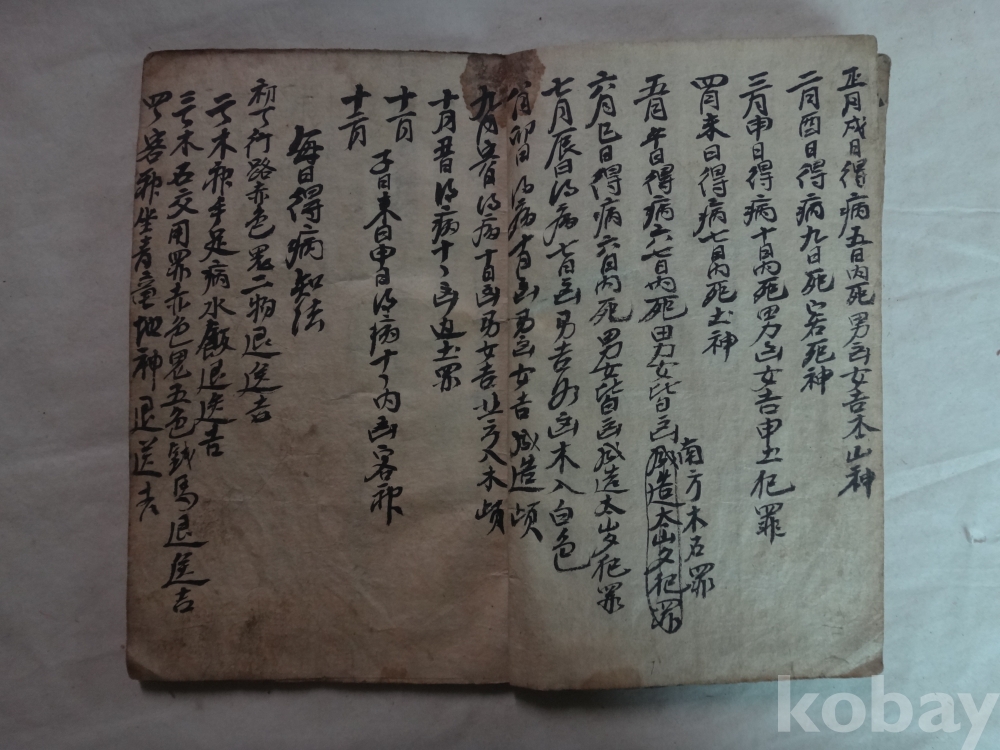 正月戌日得病五日內死男凶女吉本山神
二月酉日得病九日死客死神
三月申日得病十日內死男凶女吉申土犯罪
四月未日得病七日內死土神
南方木石罪
五月午日得病六七日內死男女皆凶成造太山夕犯罪
六月巳日得病六日內死男女皆凶成造太歲犯罪
七月辰日得病七日凶男吉女凶木入白色
八月卯日得病 凶男凶女吉成造頉
九月 得病十日凶男女吉 方入木頉
十月 得病十日凶 土罪
十一月
十二月 子日未日申日得病十日內凶客神
每日得病知法
初一日行路赤色鬼二物退送吉
二日木神手足病水飯退送吉
三日木石交用罪赤色鬼五色錢馬退送吉
四日客神坐 童地神退送吉
kobay